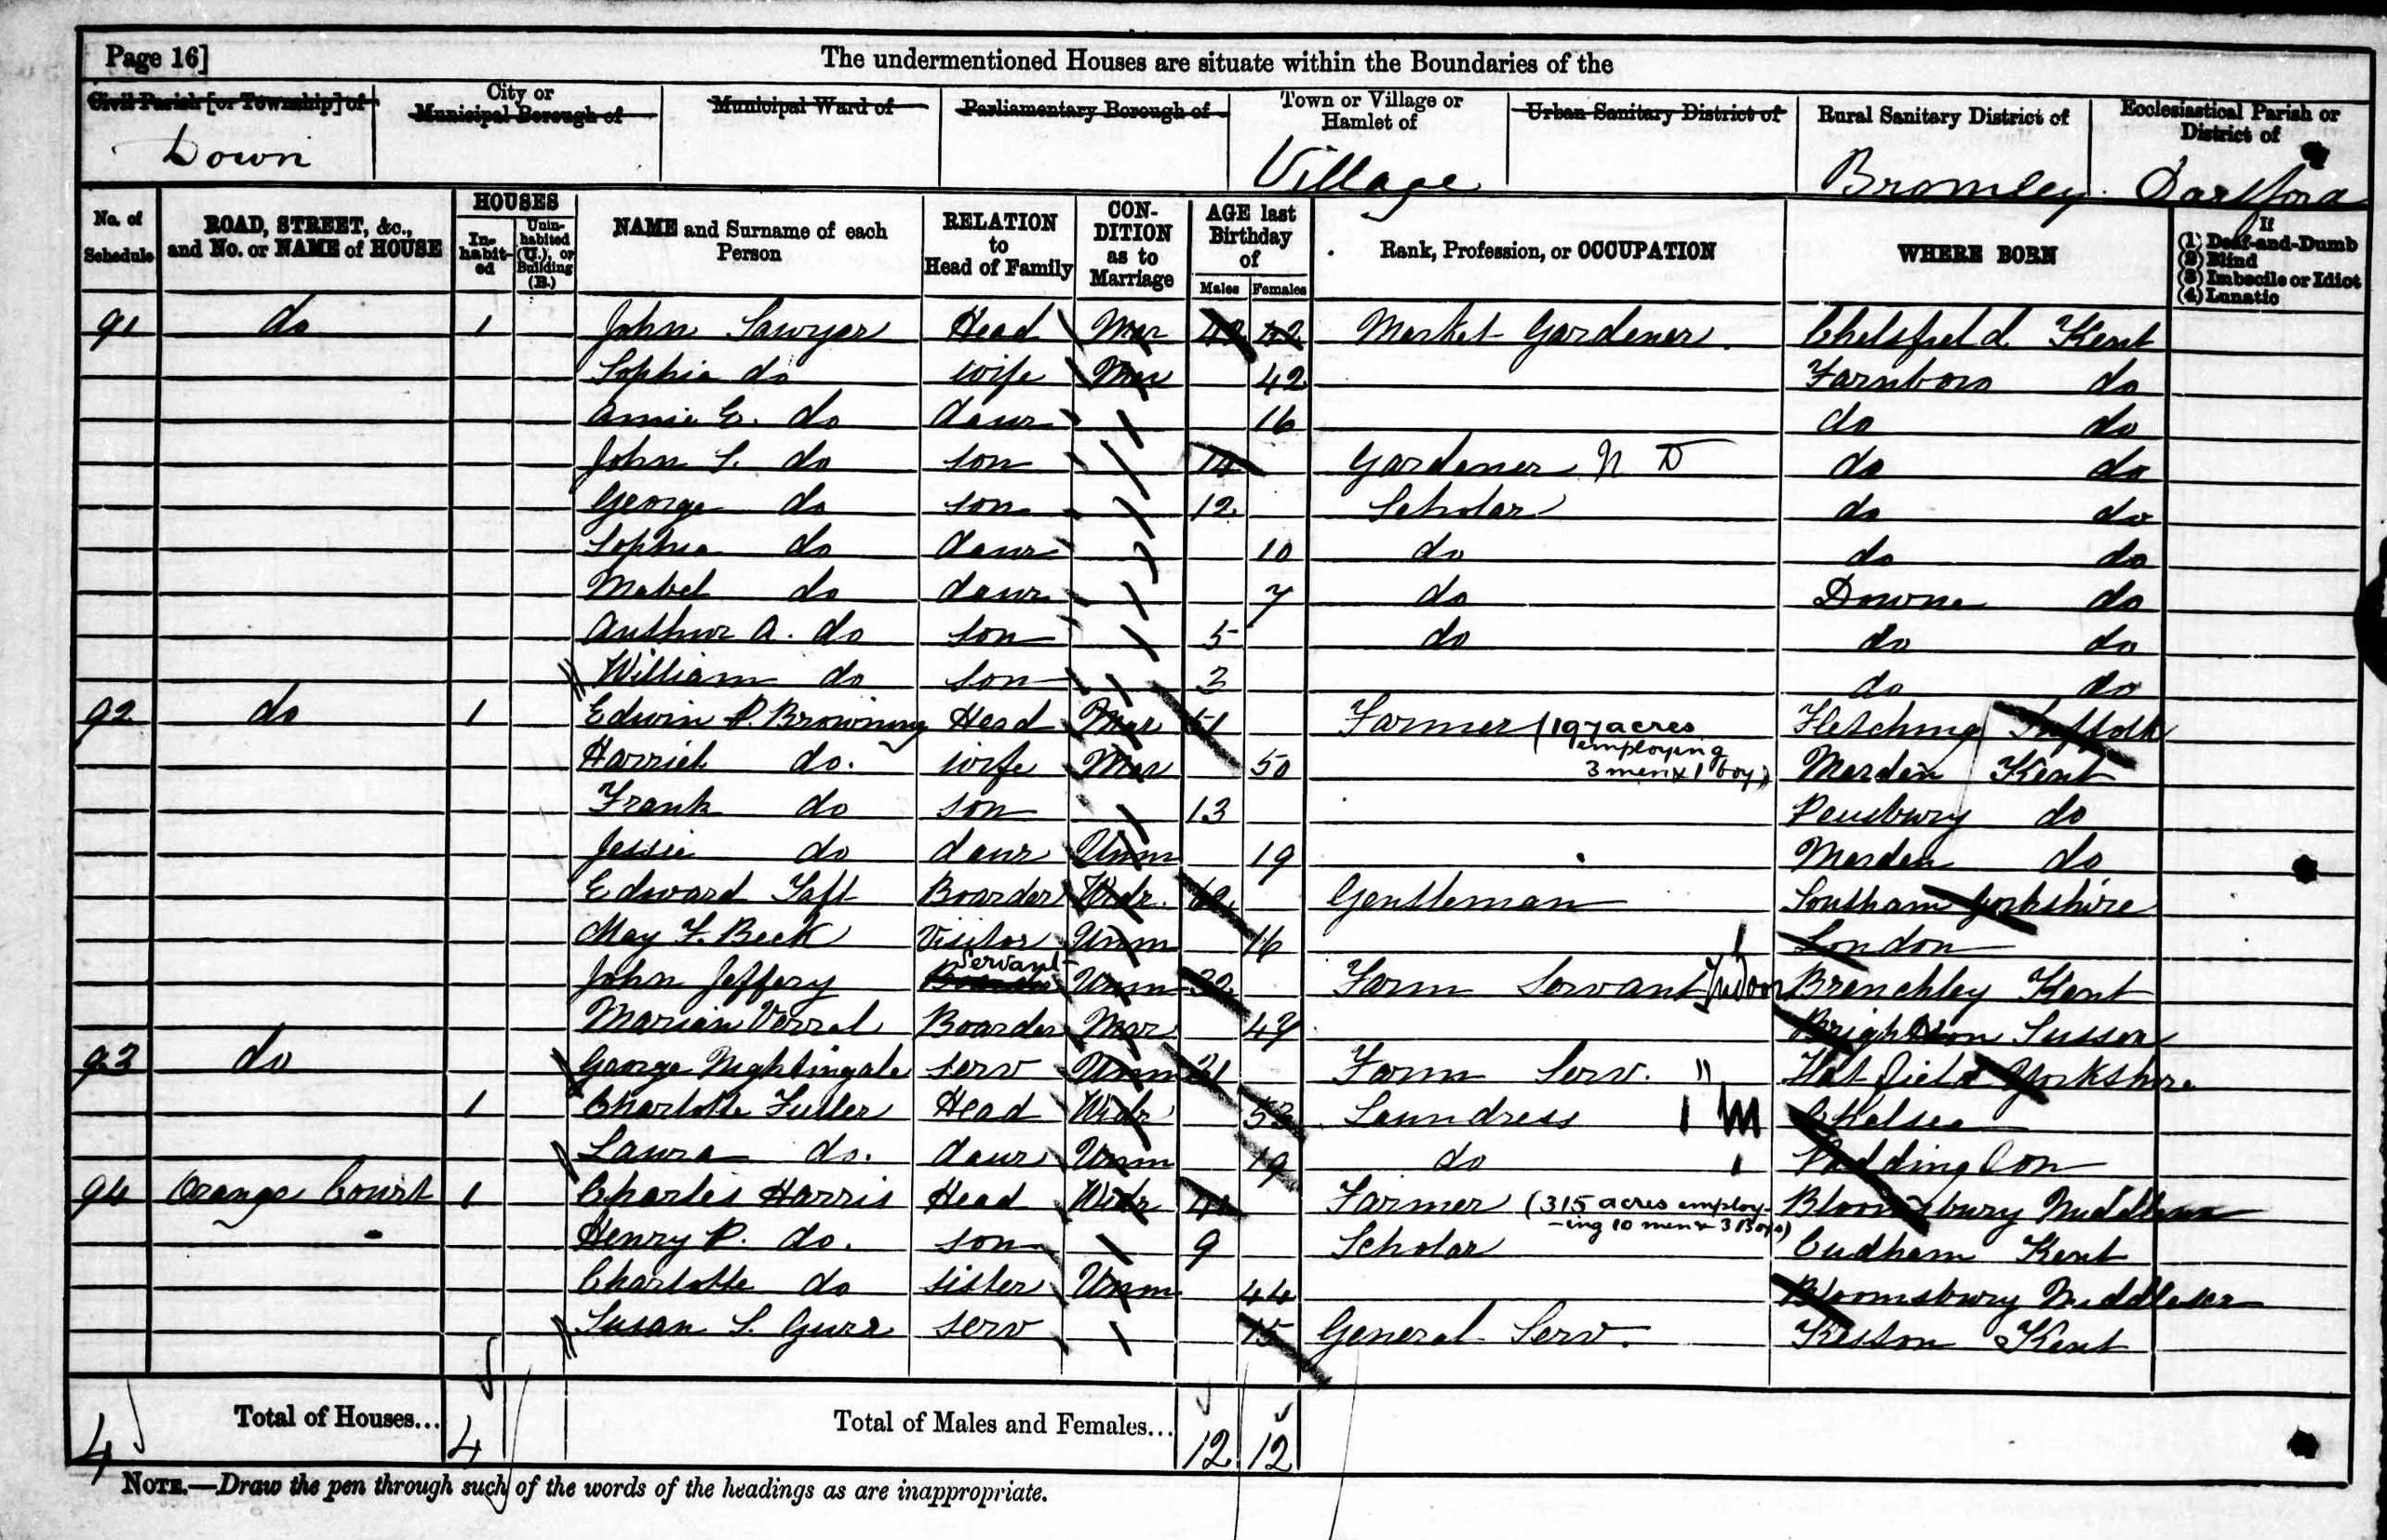 Page 16]
The undermentioned Houses are situate within the Boundaries of the
Civil Parish [or Township] of
City or Municipal Borough of
Municipal Ward of
Parliamentary Borough of
Town or Village or Hamlet of
Urban Sanitary District of
Rural Sanitary District of
Ecclesiastical Parish or District of
Down Village Bromley Dartford
No. of Schedule
ROAD, STREET, &c., and No. or NAME of HOUSE
HOUSES
In-habit-ed
Unin-habited (U.), or Building (B.)
NAME and Surname of each Person
RELATION to Head of Family
CON-DITION as to Marriage
AGE last Birthday of
Males Females
Rank, Profession, or OCCUPATION
WHERE BORN
If
(1) Deaf-and-Dumb
(2) Blind
(3) Imbecile or Idiot
(4) Lunatic
91 do 1 John Sawyer Head Mar 42 42 Market Gardener Chelsfield Kent
Sophia do wife Mar 42 Farnboro do
Annie E. do daur 16 do do
John S. do son 14 Gardener N D do do
George do son 12 Scholar do do
Sophia do daur 10 do do do
Mabel do daur 7 do Downe do
Authur A. do son 5 do do do
William do son 3 do do
92 do 1 Edwin P. Browning Head Mar 51 Farmer (197 acres employing 3 men & 1 boy) Fletching Suffolk
Harriet do. wife Mar 50 Marden Kent
Frank do son 13 Pensbury do
Jessie do daur Unm 19 Marden do
Edward Taft Boarder Widr. 62 Gentleman Southam Yorkshire
May F. Beck Visitor Unm 16 London
John Jeffery Servant Unm 32 Farm Servant Indoor Brenchley Kent
Marian Verral Boarder Mar 47 Brighton Sussex
93 do George Nightingale serv Unm 21 Farm Serv. " Hatfield Yorkshire
1 Charlotte Fuller Head Widr 53 Laundress Chelsea
Laura do. daur Unm 19 do Paddington
94 Orange Court 1 Charles Harris Head Widr Farmer (315 acres employ-ing 10 men & 3 Boys) Bloomsbury Middlesex
Henry P. do. son 9 Scholar Cudham Kent
Charlotte do sister Unm 44 Bloomsbury Middlesex
Susan S. Gurr serv 15 General Serv. Keston Kent
4 Total of Houses... 4 Total of Males and Females... 12 12
NOTE.—Draw the pen through such of the words of the headings as are inappropriate.